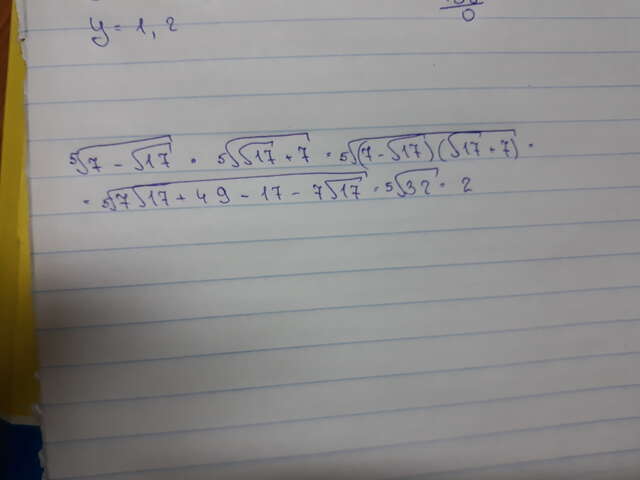 y = 1,2
⁵√(7 - √17) · ⁵√(√17 + 7) = ⁵√((7 - √17)(√17 + 7)) =
= ⁵√(7√17 + 49 - 17 - 7√17) = ⁵√32 = 2
0